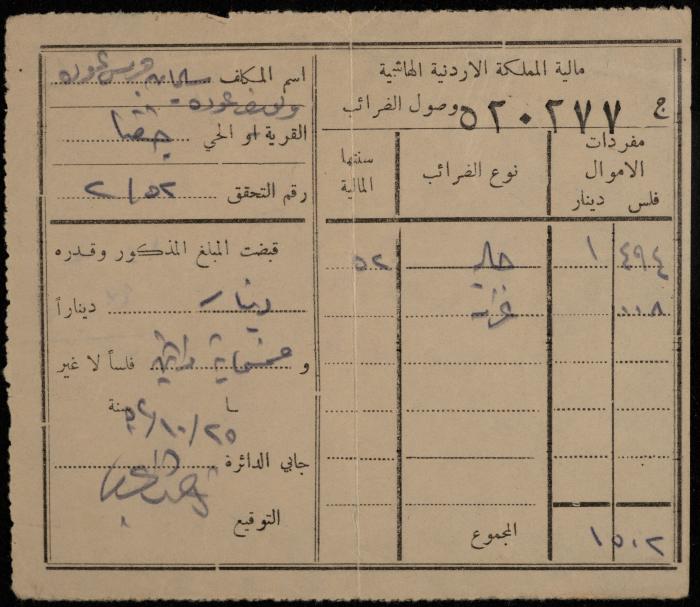 مالية المملكة الاردنية الهاشمية
ج ٥٢٠٢٧٧ وصول الضرائب
مفردات الاموال
فلس دينار
نوع الضرائب
سنتها المالية
٤٩٤ ١ ٥٢
٠٠٨ غرامة
المجموع
١٥٠٢
اسم المكلف
القرية او الحي جفنا
رقم التحقق ٢/٥٢
قبضت المبلغ المذكور وقدره
دينار ديناراً
و خمسماية واثنين فلساً لا غير
سنة
٢٥/١٠/
جابي الدائرة
التوقيع